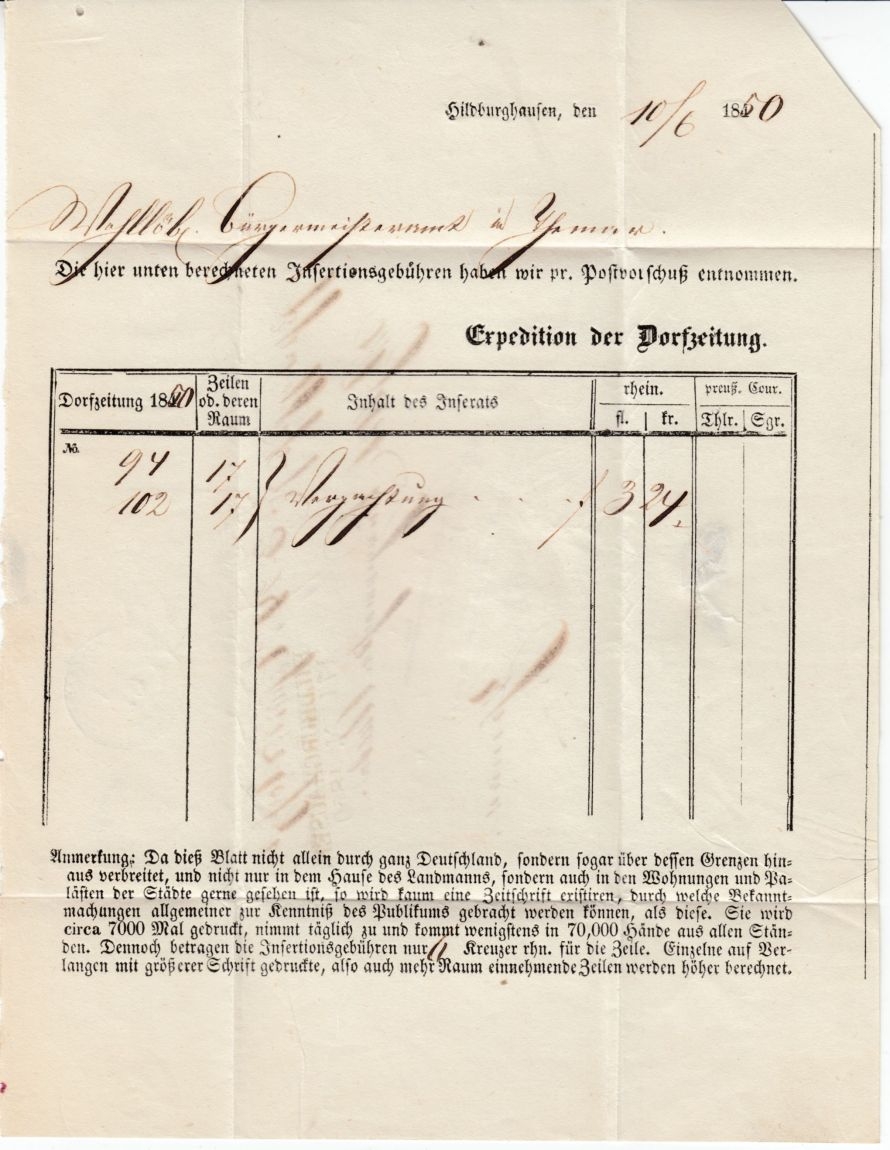 Hildburghausen, den 10/6 1850
Wohllöbl. Bürgermeisteramt in Themar.
Die hier unten berechneten Insertionsgebühren haben wir pr. Postvorschuß entnommen.
Expedition der Dorfzeitung.
Dorfzeitung 1850 Zeilen od. deren Raum Inhalt des Inserats rhein. preuß. Cour.
fl. kr. Thlr. Sgr.
No.
94 17
102 17 Verpachtung . . . 3 24
Anmerkung: Da dieß Blatt nicht allein durch ganz Deutschland, sondern sogar über dessen Grenzen hin=
aus verbreitet, und nicht nur in dem Hause des Landmanns, sondern auch in den Wohnungen und Pa=
lästen der Städte gerne gesehen ist, so wird kaum eine Zeitschrift existiren, durch welche Bekannt=
machungen allgemeiner zur Kenntniß des Publikums gebracht werden können, als diese. Sie wird
circa 7000 Mal gedruckt, nimmt täglich zu und kommt wenigstens in 70,000 Hände aus allen Stän=
den. Dennoch betragen die Insertionsgebühren nur Kreuzer rhn. für die Zeile. Einzelne auf Ver=
langen mit größerer Schrift gedruckte, also auch mehr Raum einnehmende Zeilen werden höher berechnet.